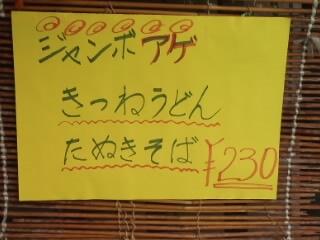 ジャンボアゲ
きつねうどん
たぬきそば ¥230